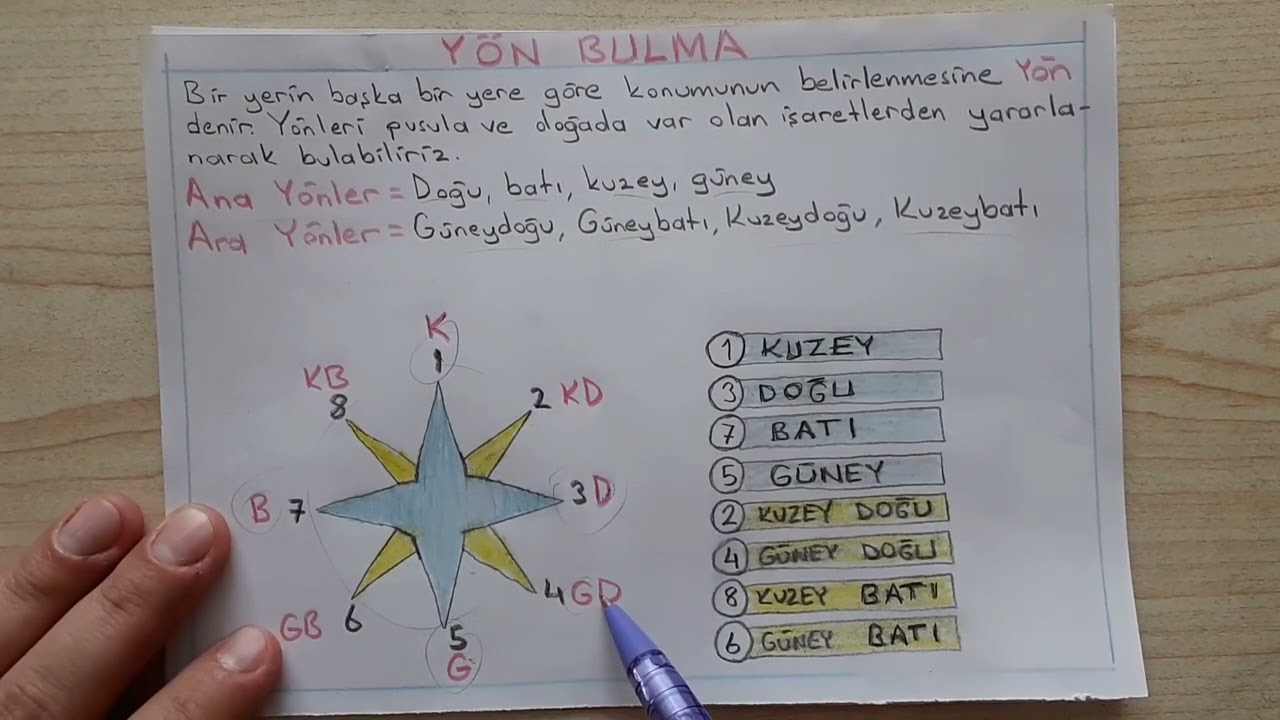 YÖN BULMA
Bir yerin başka bir yere göre konumunun belirlenmesine Yön
denir. Yönleri pusula ve doğada var olan işaretlerden yararla-
narak bulabiliriz.
Ana Yönler = Doğu, batı, kuzey, güney
Ara Yönler = Güneydoğu, Güneybatı, Kuzeydoğu, Kuzeybatı
K
1
KB
8
2 KD
B 7
3 D
4 GD
GB 6
5
G
1 KUZEY
3 DOĞU
7 BATI
5 GÜNEY
2 KUZEY DOĞU
4 GÜNEY DOĞU
8 KUZEY BATI
6 GÜNEY BATI